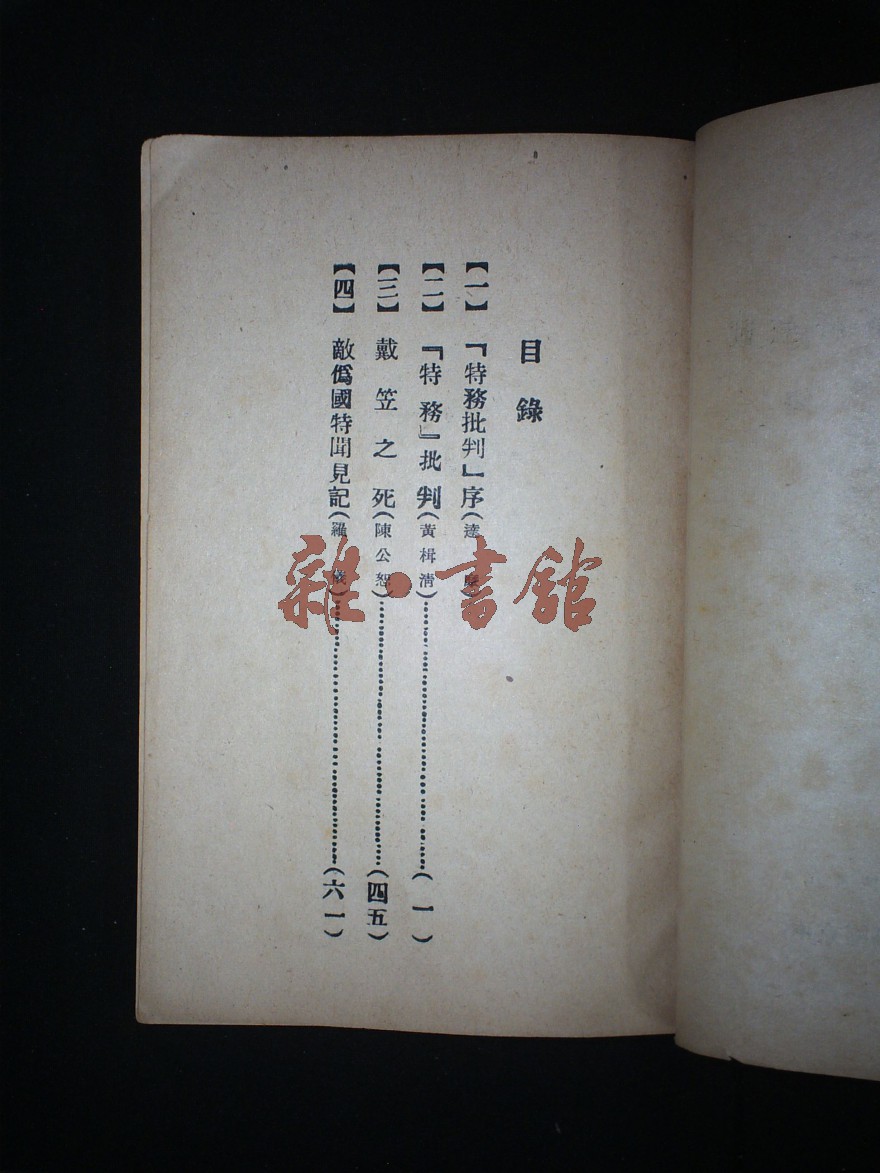 目錄
【一】『特務批判』序(達
【二】『特務』批判(黃楫清)……(一)
【三】戴笠之死(陳公恕)……(四五)
【四】敵僞國特聞見記(羅)……(六一)
雜·書館